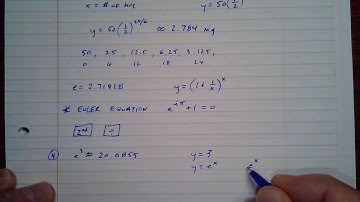 x = # of hrs
y = 50(1/2)
y = 50(1/2)^25/6 ≈ 2.784 mg
50, 25, 12.5, 6.25, 3.125,
0 6 12 18 24
e = 2.71928 y = (1 + 1/x)^x
* EULER EQUATION e^iπ + 1 = 0
2nd
④ e³ ≈ 20.0855 y = 3
y = e^x e^x